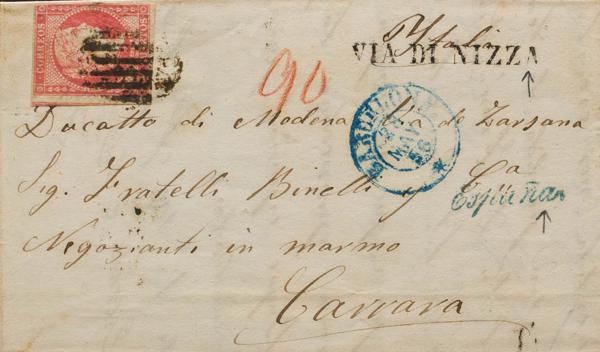 CORREOS
Italia
VIA DI NIZZA
90
BARCELONA
MAY
56
Ducatto di Modena Via de Zarsana
Sig. Fratelli Binelli y Cª
España
Negozianti in marmo
Carrara